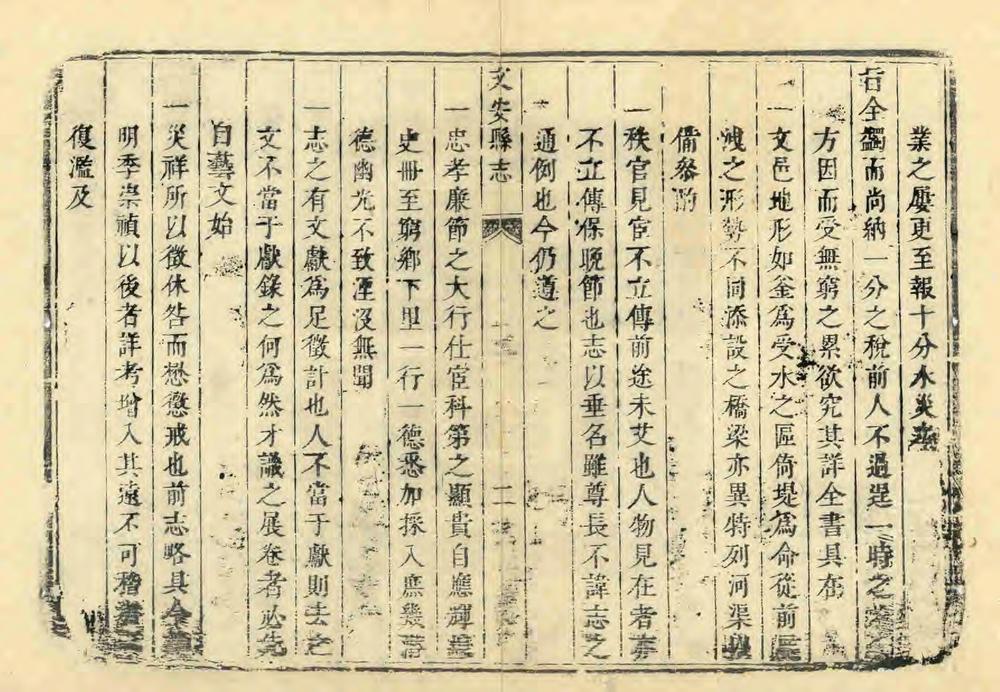 業之屢更至報十分水災
旨全蠲而尚納一分之稅前人不過逞一時之
方因而受無窮之累欲究其詳全書具在
一文邑地形如釜為受水之區倚堤為命從前
淺之形勢不同添設之橋梁亦異特列河渠
備參酌
一秩官見宦不立傳前途未艾也人物見在者亦
不立傳保晚節也志以垂名雖尊長不諱志之
通例也今仍遵之
文安縣志 二
一忠孝廉節之大行仕宦科第之顯貴自應輝
史冊至窮鄉下里一行一德悉加採入庶幾
德幽光不致湮沒無聞
一志之有文獻為足徵計也人不當于獻則去之
文不當于獻錄之何為然才識之展卷者必先
自藝文始
一災祥所以徵休咎而懋懲戒也前志略具今
明季崇禎以後者詳考增入其遠不可稽
復濫及